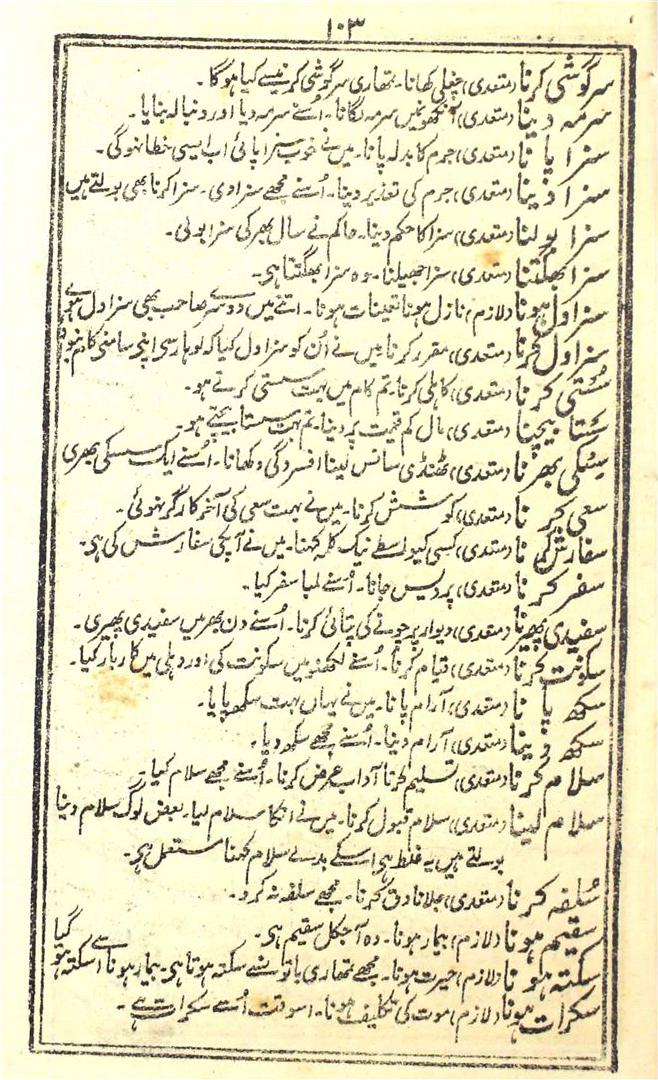 ۱۰۳
سرگوشی کرنا (متعدی) چغلی کھانا۔ تمھاری سرگوشی کرنیسے کیا ہوگا۔
سرمہ دینا (متعدی) آنکھونمیں سرمہ لگانا۔ اُسنے سرمہ دیا اور دنبالہ بنایا۔
سزا پانا (متعدی) جرم کا بدلہ پانا۔ میں نے خوب سزا پائی اب ایسی خطا نہوگی۔
سزا دینا (متعدی) جرم کی تعذیر دینا۔ اُسنے مجھے سزا دی۔ سزا کرنا بھی بولتے ہیں
سزا بولنا (متعدی) سزا کا حکم دینا۔ حاکم نے سال بھر کی سزا بولی۔
سزا بھگتنا (متعدی) سزا جھیلنا۔ وہ سزا بھگتتا ہی۔
سزاول ہونا (لازم) نازل ہونا تعینات ہونا۔ اتنے میں دوسرے صاحب بھی سزاول ہوے
سزاول کرنا (متعدی) مقرر کرنا میں نے اُن کو سزاول کیا کہ لوہار سی اپنی سامنی کام بنواؤ
سُستی کرنا (متعدی) کاہلی کرنا۔ تم کام میں بہت سستی کرتے ہو۔
سستا بیچنا (متعدی) مال کم قیمت پر دینا۔ تم بہت سستا بیچتے ہو۔
سسکی بھرنا (متعدی) ٹھنڈی سانس لینا افسردگی دکھانا۔ اُسنے ایک سسکی بھری
سعی کرنا (متعدی) کوشش کرنا۔ میں نے بہت سعی کی آخر کارگر نہوئی۔
سفارش کرنا (متعدی) کسی کیواسطے نیک کلمہ کہنا۔ میں نے آپکی سفارش کی ہی۔
سفر کرنا (متعدی) پردیس جانا۔ اُسنے لمبا سفر کیا۔
سفیدی پھیرنا (متعدی) دیوار پر چونے کی پتائی کرنا۔ اُسنے دن بھر میں سفیدی پھیری۔
سکونت کرنا (متعدی) قیام کرنا۔ اُسنے لکھنؤ میں سکونت کی اور دہلی میں کاربار کیا۔
سکھ پانا (متعدی) آرام پانا۔ میں نے یہاں بہت سکھ پایا۔
سکھ دینا (متعدی) آرام دینا۔ اُسنے مجھے سکھ دیا۔
سلام کرنا (متعدی) تسلیم کرنا آداب عرض کرنا۔ اُسنے مجھے سلام کیا۔
سلام لینا (متعدی) سلام قبول کرنا۔ میں نے انکا سلام لیا۔ بعض لوگ سلام دینا
بولتے ہیں یہ غلط ہی اسکے بدلے سلام کہنا مستعمل ہی۔
سُلفہ کرنا (متعدی) جلانا دق کرنا۔ مجھے سلفہ نہ کرو۔
سقیم ہونا (لازم) بیمار ہونا۔ وہ آجکل سقیم ہی۔
سکتہ ہونا (لازم) حیرت ہونا۔ مجھے تمھاری باتوں سے سکتہ ہوتا ہی۔ بیمار ہونا اُسے سکتہ ہو گیا
سکرات ہونا (لازم) موت کی تکلیف ہونا۔ اسوقت اُسے سکرات ہے۔